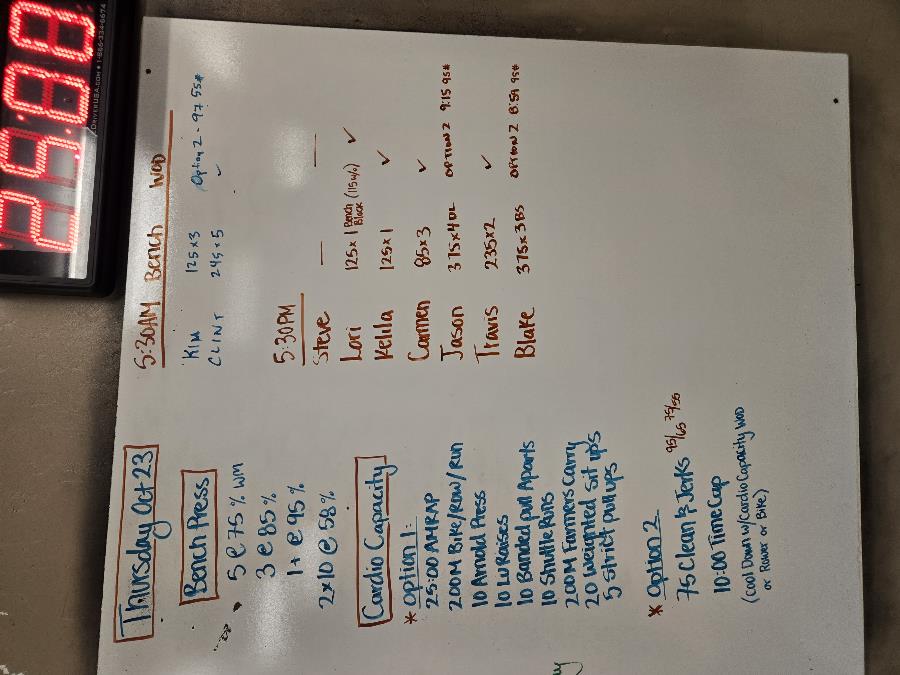 Thursday Oct 23
Bench Press
5 @ 75% WM
3 @ 85%
1+ @ 95%
2x10 @ 58%
Cardio Capacity
* Option 1:
25:00 AMRAP
200M Bike/Row/Run
10 Arnold Press
10 Lu Raises
10 Banded pull Aparts
10 Shuttle Runs
200M Farmers Carry
20 weighted sit ups
5 strict pull ups
* Option 2
75 Clean & Jerks 95/65 75/55
10:00 Time Cap
(Cool Down w/Cardio Capacity WOD
or Rower or Bike)
5:30AM Bench WOD
KIM 125x3 Option 2 - 97 55#
CLINT 245x5 ✓
5:30PM
Steve — —
Lori 125x1 Bench Block (115 w/o) ✓
Kelila 125x1 ✓
Carmen 85x3 ✓
Jason 375x4 DL OPTION 2 9:15 95#
Travis 235x2 ✓
Blake 375x3 BS OPTION 2 8:59 95#
DRIVERUSA.COM • 1-866-334-6674